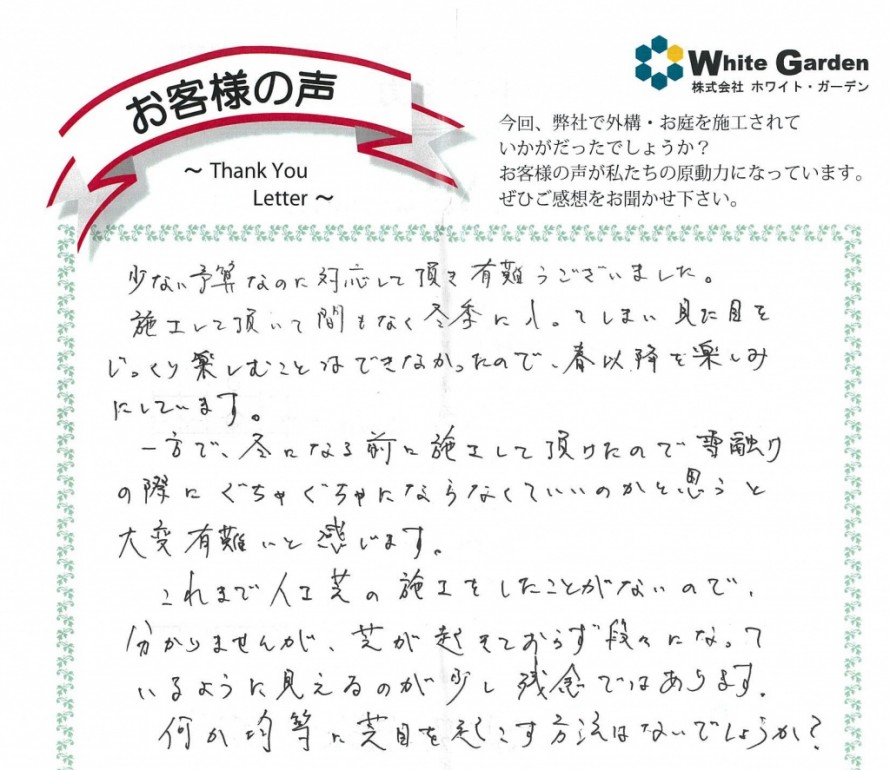 お客様の声
～ Thank You
Letter ～
White Garden
株式会社 ホワイト・ガーデン
今回、弊社で外構・お庭を施工されて
いかがだったでしょうか？
お客様の声が私たちの原動力になっています。
ぜひご感想をお聞かせ下さい。
少ない予算なのに対応して頂き有難うございました。
施工して頂いて間もなく冬季に入ってしまい見た目を
じっくり楽しむことはできなかったので、春以降を楽しみ
にしています。
一方で、冬になる前に施工して頂けたので雪融け
の際にぐちゃぐちゃにならなくていいのかと思うと
大変有難いと感じます。
これまで人工芝の施工をしたことがないので、
分かりませんが、芝が起きておらず段々になって
いるように見えるのが少し残念ではあります。
何か均等に芝目を起こす方法はないでしょうか？